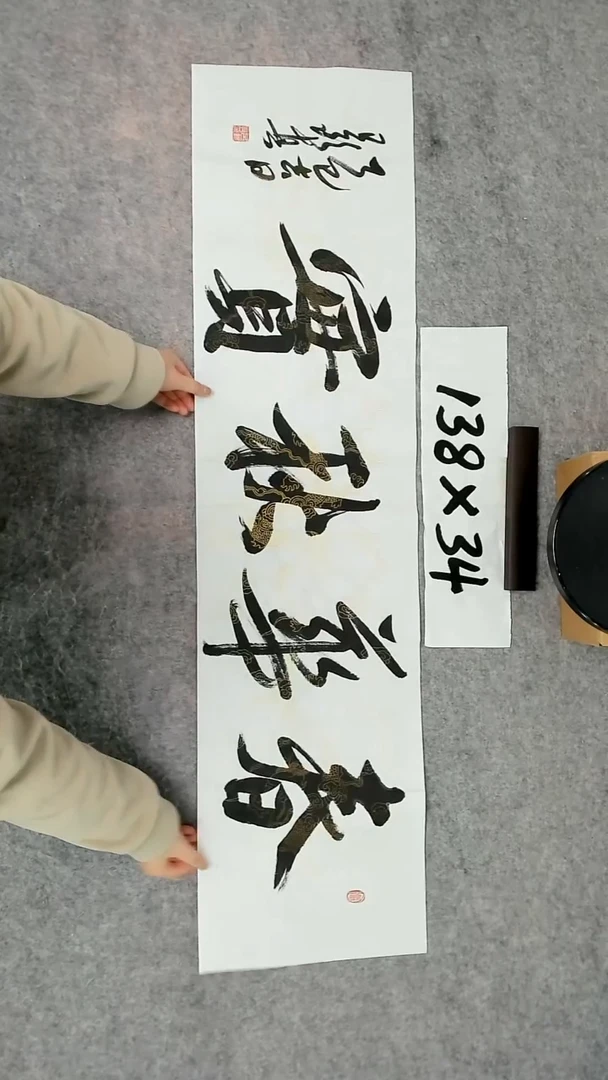 春華秋實
138×34